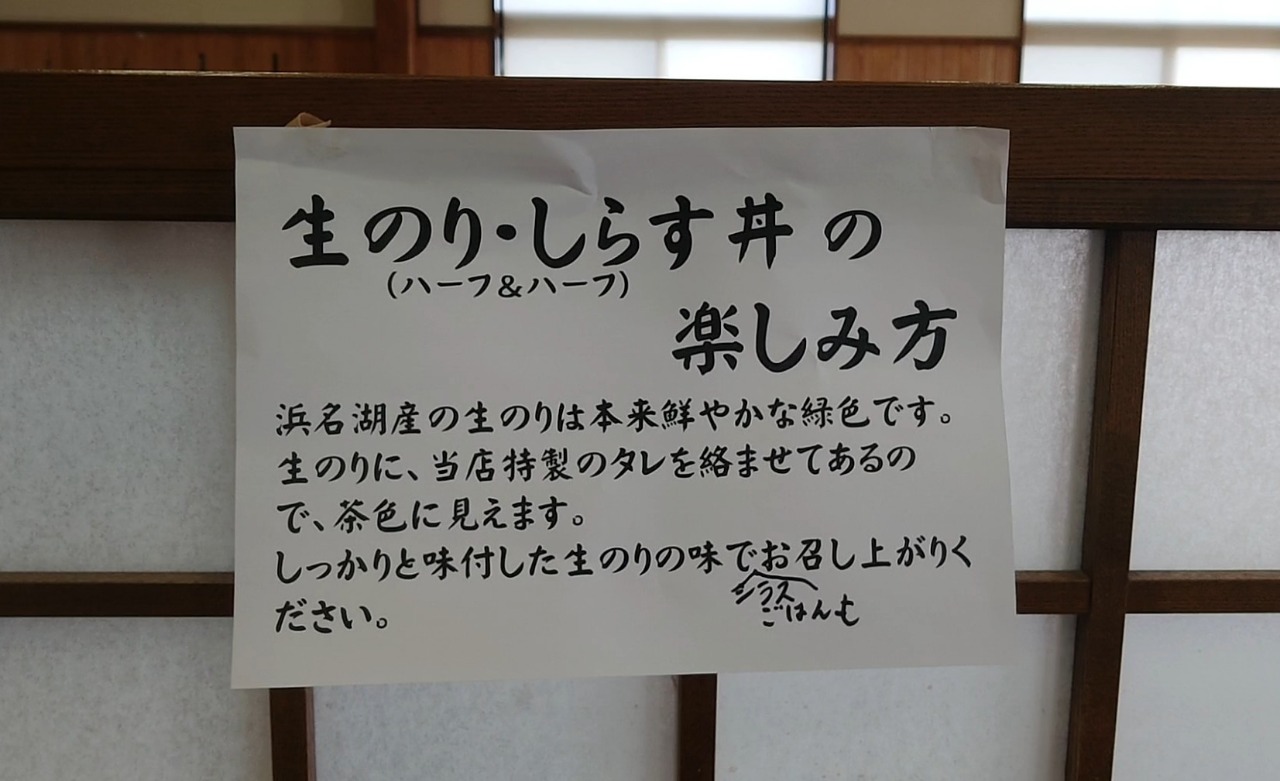 生のり・しらす丼の
(ハーフ&ハーフ)
楽しみ方
浜名湖産の生のりは本来鮮やかな緑色です。
生のりに、当店特製のタレを絡ませてあるの
で、茶色に見えます。
しっかりと味付した生のりの味でお召し上がりく
シラス
ごはんも
ださい。